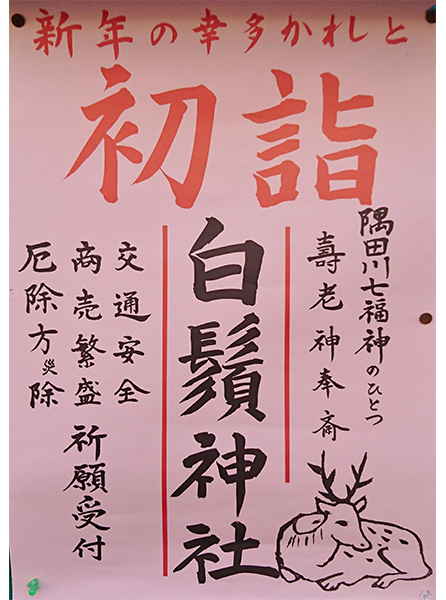 新年の幸多かれと
初詣
隅田川七福神のひとつ
壽老神奉斎
白鬚神社
交通安全
商売繁盛 祈願受付
厄除方災除